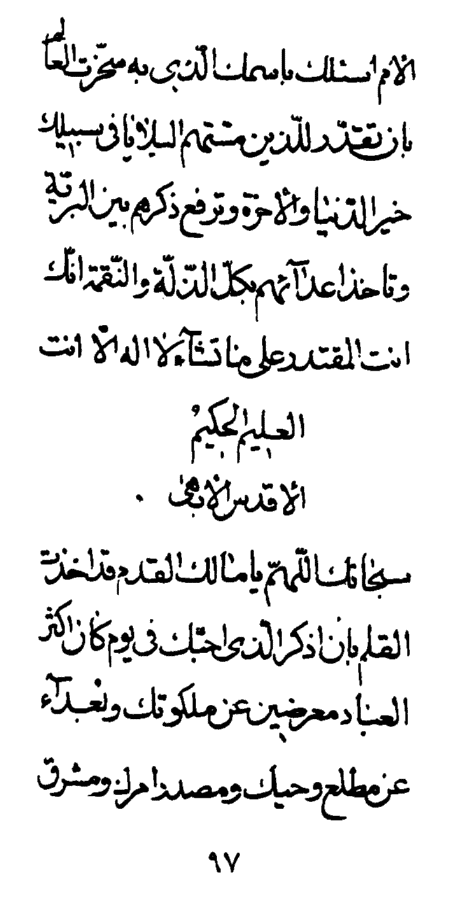 الامم اسئلك باسمك الّذی به سخّرت العالم
بان تقدّر للّذین مسّتهم البلایا فی سبیلك
خیر الدّنیا والاخرة وترفع ذکرهم بین البریّة
وتاخذ اعدآئهم بکلّ الذّلّة والنّقمة انّك
انت المقتدر علی ما تشآء لا اله الّا انت
العلیم الحکیمُ
الاقدس الابهی
سبحانك اللّهمّ یا مالك القدم قد اخذت
القلم بان اذکر الّذی احبّك فی یوم کان اکثر
العباد معرضین عن ملکوتك وبُعدآء
عن مطلع وحیك ومصدر امرك ومشرق
٩٧